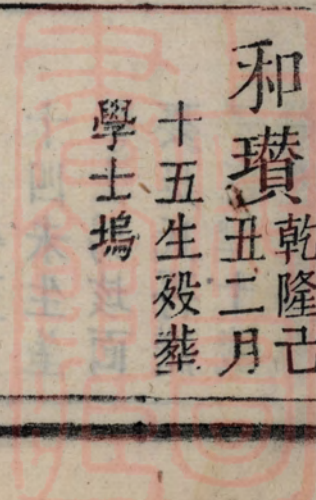 和瓚乾隆己
丑二月
十五生殁塟
學士塢